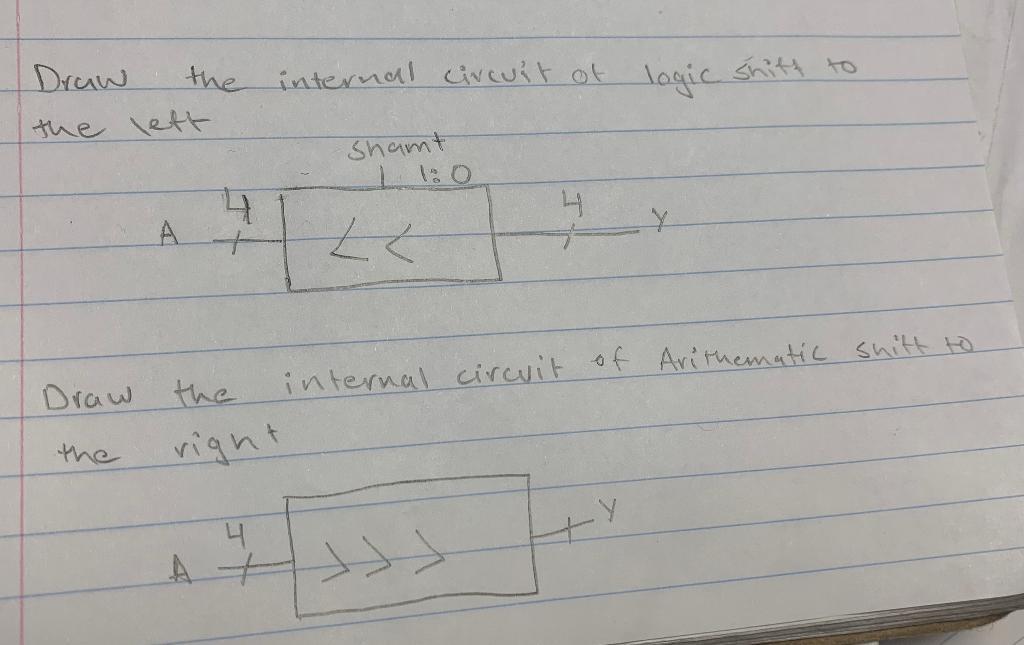 Draw the internal circuit of logic shift to
the left
shamt
1:0
A 4 << 4 Y
Draw the internal circuit of Arithematic shift to
the right
A 4 >>> Y